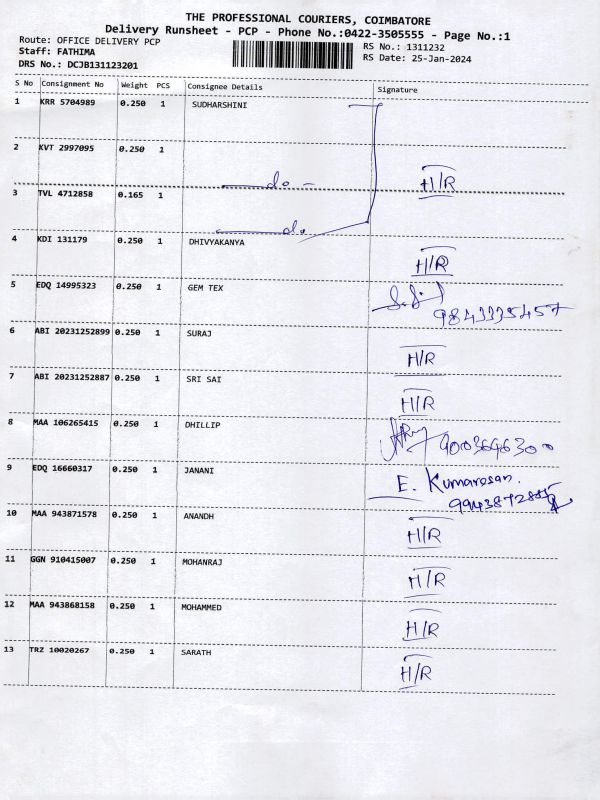 THE PROFESSIONAL COURIERS, COIMBATORE
Delivery Runsheet - PCP - Phone No.:0422-3505555 - Page No.:1
Route: OFFICE DELIVERY PCP
Staff: FATHIMA
DRS No.: DCJB131123201
RS No.: 1311232
RS Date: 25-Jan-2024
S No Consignment No Weight PCS Consignee Details Signature
1 KRR 5704989 0.250 1 SUDHARSHINI
2 KVT 2997095 0.250 1
do - H/R
3 TVL 4712858 0.165 1
do
4 KDI 131179 0.250 1 DHIVYAKANYA H/R
5 EDQ 14995323 0.250 1 GEM TEX
6 ABI 20231252899 0.250 1 SURAJ H/R
7 ABI 20231252887 0.250 1 SRI SAI H/R
8 MAA 106265415 0.250 1 DHILLIP
9 EDQ 16660317 0.250 1 JANANI E. Kumaresan.
10 MAA 943871578 0.250 1 ANANDH H/R
11 GGN 910415007 0.250 1 MOHANRAJ H/R
12 MAA 943868158 0.250 1 MOHAMMED H/R
13 TRZ 10020267 0.250 1 SARATH H/R